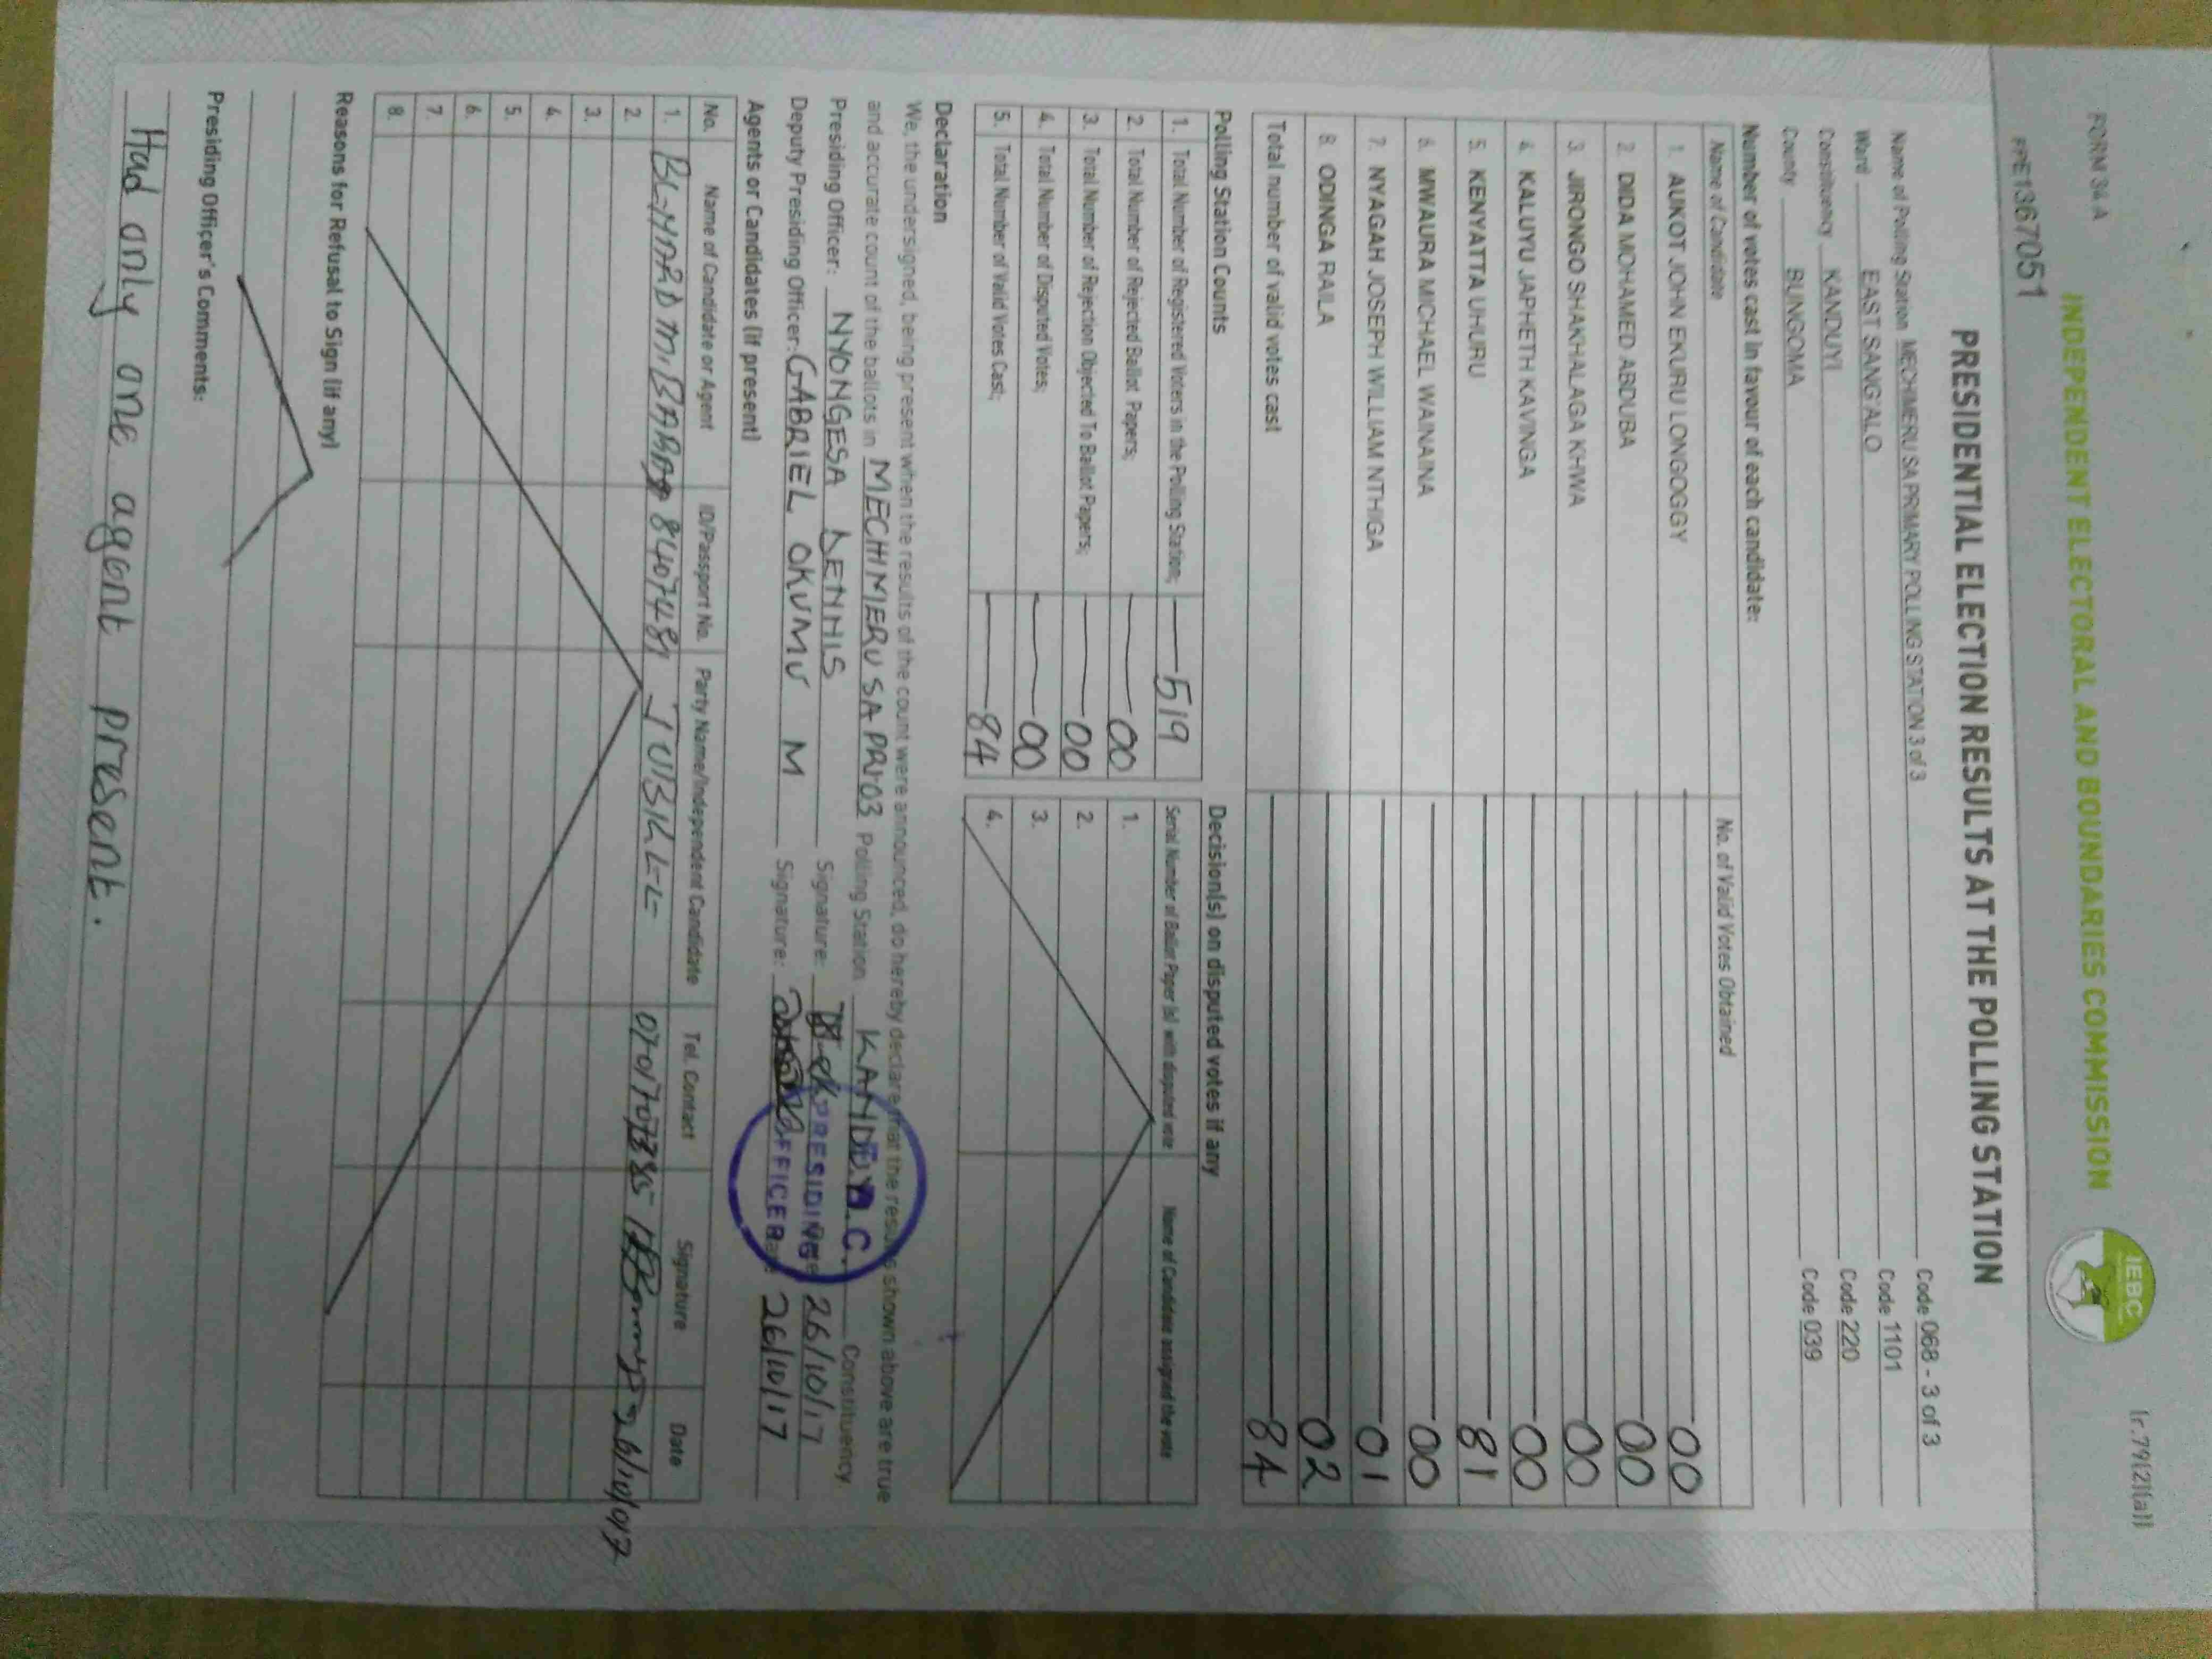 FORM 34 A
(r.79(2)(a))
INDEPENDENT ELECTORAL AND BOUNDARIES COMMISSION
IEBC
PPE1367051
PRESIDENTIAL ELECTION RESULTS AT THE POLLING STATION
Name of Polling Station MECHIMERU SA PRIMARY POLLING STATION 3 of 3 Code 068 - 3 of 3
Ward EAST SANG'ALO Code 1101
Constituency KANDUYI Code 220
County BUNGOMA Code 039
Number of votes cast in favour of each candidate:
Name of Candidate No. of Valid Votes Obtained
1. AUKOT JOHN EKURU LONGOGGY 00
2. DIDA MOHAMED ABDUBA 00
3. JIRONGO SHAKHALAGA KHWA 00
4. KALUYU JAPHETH KAVINGA 00
5. KENYATTA UHURU 81
6. MWAURA MICHAEL WAINAINA 00
7. NYAGAH JOSEPH WILLIAM NTHIGA 01
8. ODINGA RAILA 02
Total number of valid votes cast 84
Polling Station Counts
1. Total Number of Registered Voters in the Polling Station; 519
2. Total Number of Rejected Ballot Papers; 00
3. Total Number of Rejection Objected To Ballot Papers; 00
4. Total Number of Disputed Votes; 00
5. Total Number of Valid Votes Cast; 84
Decision(s) on disputed votes if any
Serial Number of Ballot Paper (s) with disputed vote Name of Candidate assigned the vote
1.
2.
3.
4.
Declaration
We, the undersigned, being present when the results of the count were announced, do hereby declare that the results shown above are true
and accurate count of the ballots in MECHIMERU SA PRI 03 Polling Station KANDUYI Constituency.
Presiding Officer: NYONGESA DENNIS Signature: 26/10/17
Deputy Presiding Officer: GABRIEL OKUMU M Signature: 26/10/17
PRESIDING
OFFICER
Agents or Candidates (if present)
No. Name of Candidate or Agent ID/Passport No. Party Name/Independent Candidate Tel. Contact Signature Date
1. JUBILEE
2.
3.
4.
5.
6.
7.
8.
Reasons for Refusal to Sign (if any)
Presiding Officer's Comments:
Had only one agent present.